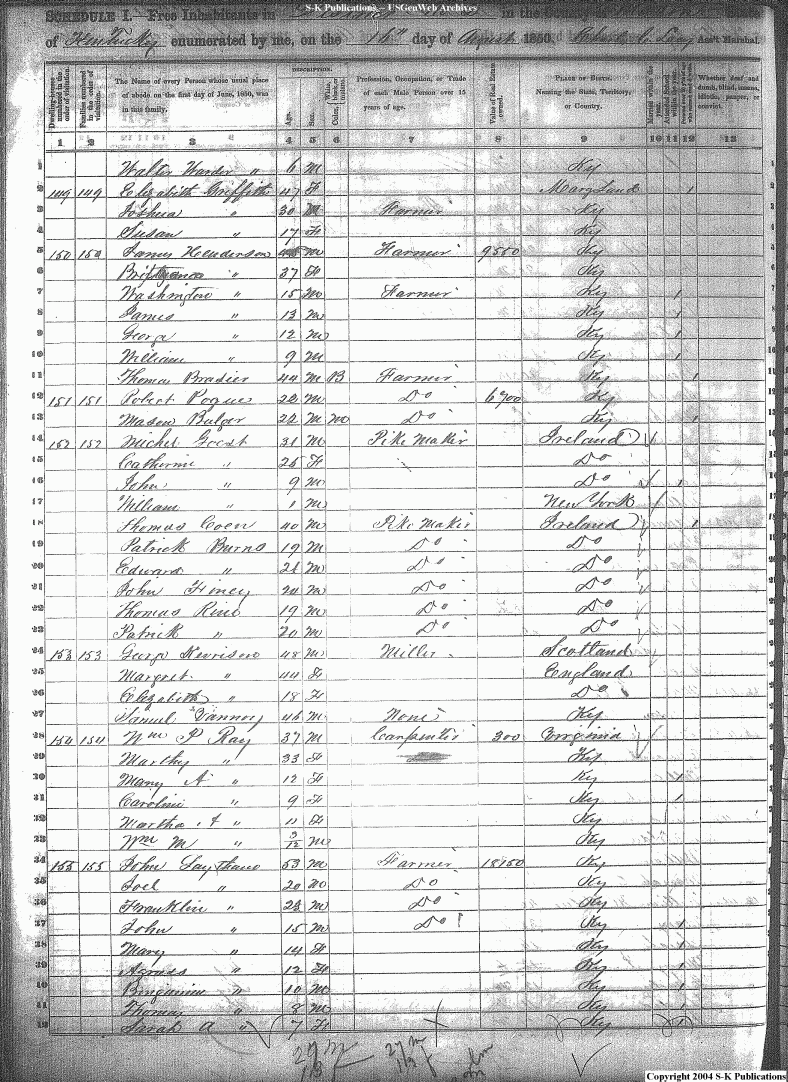 S-K Publications - USGenWeb Archives
SCHEDULE I.—Free Inhabitants in in the County
of Kentucky enumerated by me, on the 16th day of August 1850. Ass't Marshal.
Dwelling-houses numbered in the order of visitation. Families numbered in the order of visitation. The Name of every Person whose usual place of abode on the first day of June, 1850, was in this family. DESCRIPTION. Age. Sex. White, black, or mulatto. Profession, Occupation, or Trade of each Male Person over 15 years of age. Value of Real Estate owned. PLACE OF BIRTH. Naming the State, Territory, or Country. Married within the year. Attended School within the year. Whether deaf and dumb, blind, insane, idiotic, pauper, or convict.
1 2 3 4 5 6 7 8 9 10 11 12 13
1 Walter Warder " 6 M Ky
2 149 149 Elizabeth Griffith 47 F Maryland 1
3 Joshua " 30 M Farmer Ky
4 Susan " 17 F Ky
5 150 150 James Henderson M Farmer 9550 Ky
6 " 37 F Ky
7 Washington " 15 M Farmer Ky 1
8 James " 13 M Ky 1
9 George " 12 M Ky 1
10 William " 9 M Ky 1
11 Thomas Brasier 44 M B Farmer Ky 1
12 151 151 Robert Pogue 24 M Do 6900 Ky
13 Mason Bulger 22 M Do Ky 1
14 152 152 Michel 31 M Pike Maker Ireland
15 Catherine " 25 F Do
16 John " 9 M Do 1
17 William " 1 M New York
18 Thomas Coen 40 M Pike Maker Ireland 1
19 Patrick Burns 19 M Do Do
20 Edward " 21 M Do Do
21 John Finey 24 M Do Do
22 Thomas Rine 19 M Do Do
23 Patrick " 20 M Do Do
24 153 153 George Morrison 48 M Miller Scotland
25 Margret " 44 F England
26 Elizabeth " 18 F Do
27 Samuel Vannoy 46 M None Ky
28 154 154 Wm P Ray 37 M Carpenter 300 Virginia
29 Marthy " 33 F Ky
30 Mary A " 12 F Ky 1
31 Caroline " 9 F Ky 1
32 Martha F " 11 F Ky
33 Wm M " 3/12 M Ky
34 155 155 John 53 M Farmer 18150 Ky
35 Joel " 20 M Do Ky
36 Franklin " 23 M Do Ky
37 John " 15 M Do Ky 1
38 Mary " 14 F Ky 1
39 Agness " 12 F Ky 1
40 " 10 M Ky 1
41 Thomas " 8 M Ky 1
42 Sarah A " 7 F Ky 1
Copyright 2004 S-K Publications